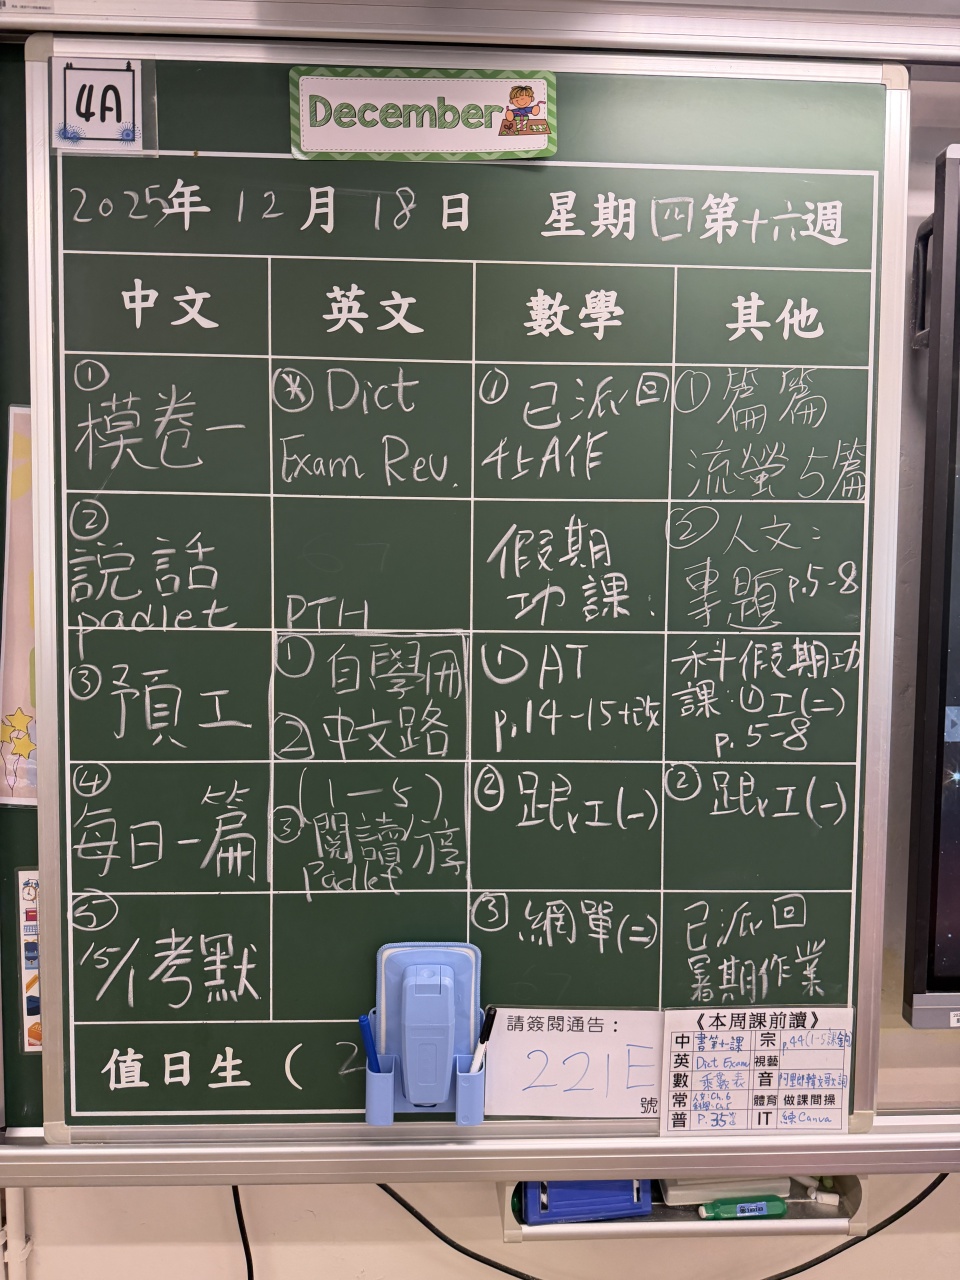 4A
December
2025年 12月 18日 星期四第十六週
中文
英文
數學
其他
①
模卷一
㊟ Dict
Exam Rev.
① 已派回
45A作
① 篇篇
流螢5篇
②
說話
padlet
PTH
假期
功課:
② 人文:
專題p.5-8
③ 預工
① 自學冊
② 中文路
① AT
p.14-15+改
科假期功
課:①工(二)
p.5-8
④
每日一篇
(1-5)
③ 閱讀分享
Padlet
② 跟工(一)
② 跟工(一)
⑤
15/1考默
③ 網單(二)
已派回
暑期作業
值日生 ( 2
請簽閱通告:
221E
號
《本周課前讀》
中 書第十一課
宗 p.44(1-5課金句)
英 Dict Exam
視藝
數 乘數表
音
常
體育 做課間操
普 P.35
IT 練Canva